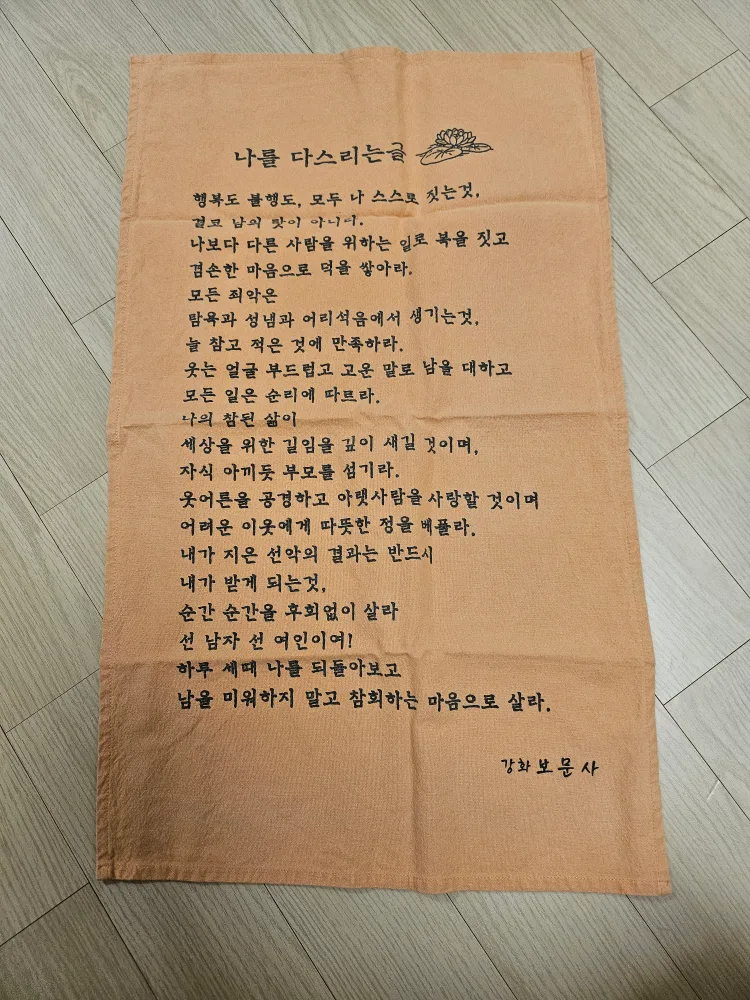 나를 다스리는글
행복도 불행도, 모두 나 스스로 짓는것,
결코 남의 탓이 아니다.
나보다 다른 사람을 위하는 일로 복을 짓고
겸손한 마음으로 덕을 쌓아라.
모든 죄악은
탐욕과 성냄과 어리석음에서 생기는것,
늘 참고 적은 것에 만족하라.
웃는 얼굴 부드럽고 고운 말로 남을 대하고
모든 일은 순리에 따르라.
나의 참된 삶이
세상을 위한 길임을 깊이 새길 것이며,
자식 아끼듯 부모를 섬기라.
웃어른을 공경하고 아랫사람을 사랑할 것이며
어려운 이웃에게 따뜻한 정을 베풀라.
내가 지은 선악의 결과는 반드시
내가 받게 되는것,
순간 순간을 후회없이 살라
선 남자 선 여인이여!
하루 세때 나를 되돌아보고
남을 미워하지 말고 참회하는 마음으로 살라.
강화 보문사